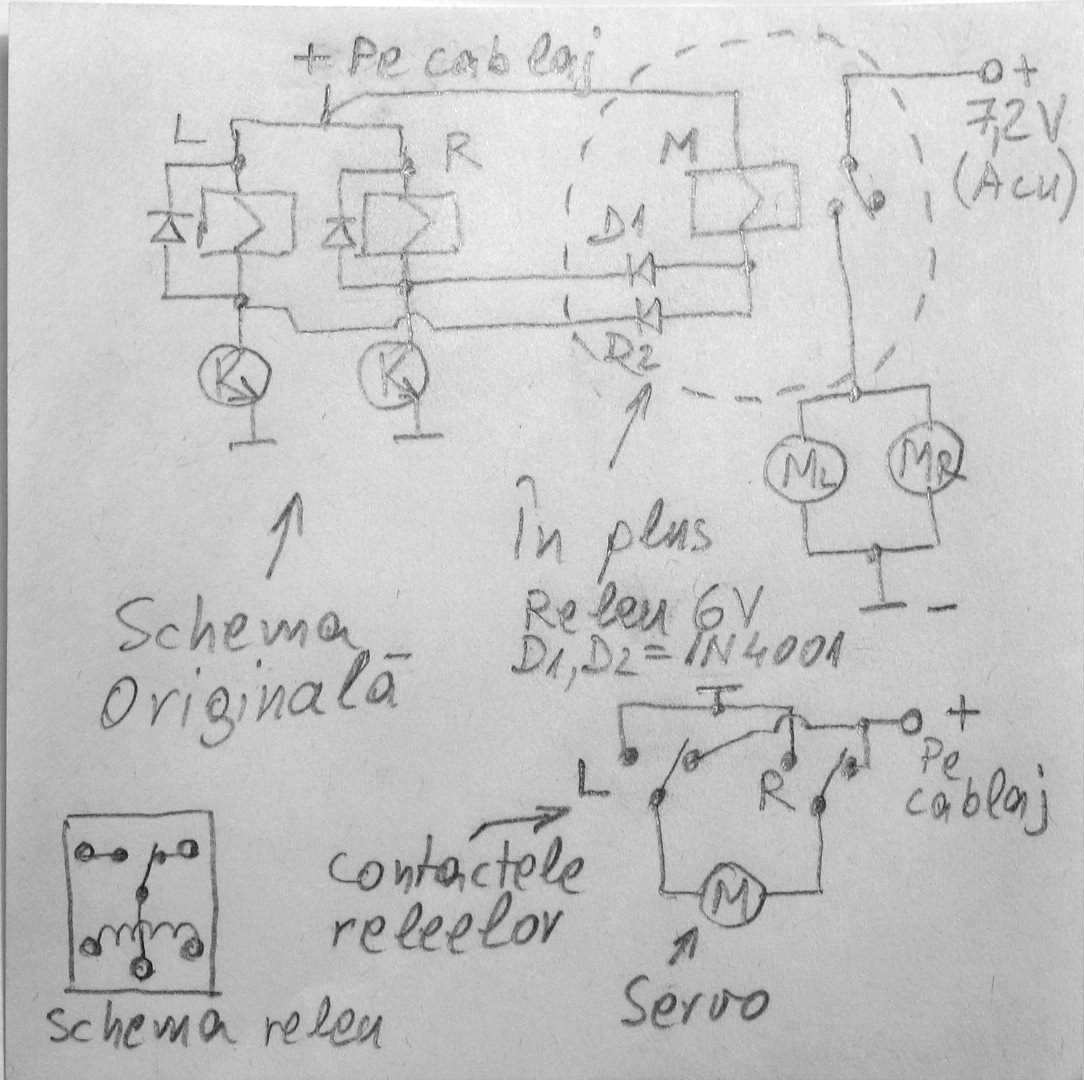 + Pe cablaj
L
R
M
+
7,2V
(Acu)
D1
D2
K
K
ML
MR
În plus
Releu 6V
D1, D2 = 1N4001
-
Schema
Originală
L
R
+
Pe
cablaj
Contactele
releelor
M
Servo
Schema releu